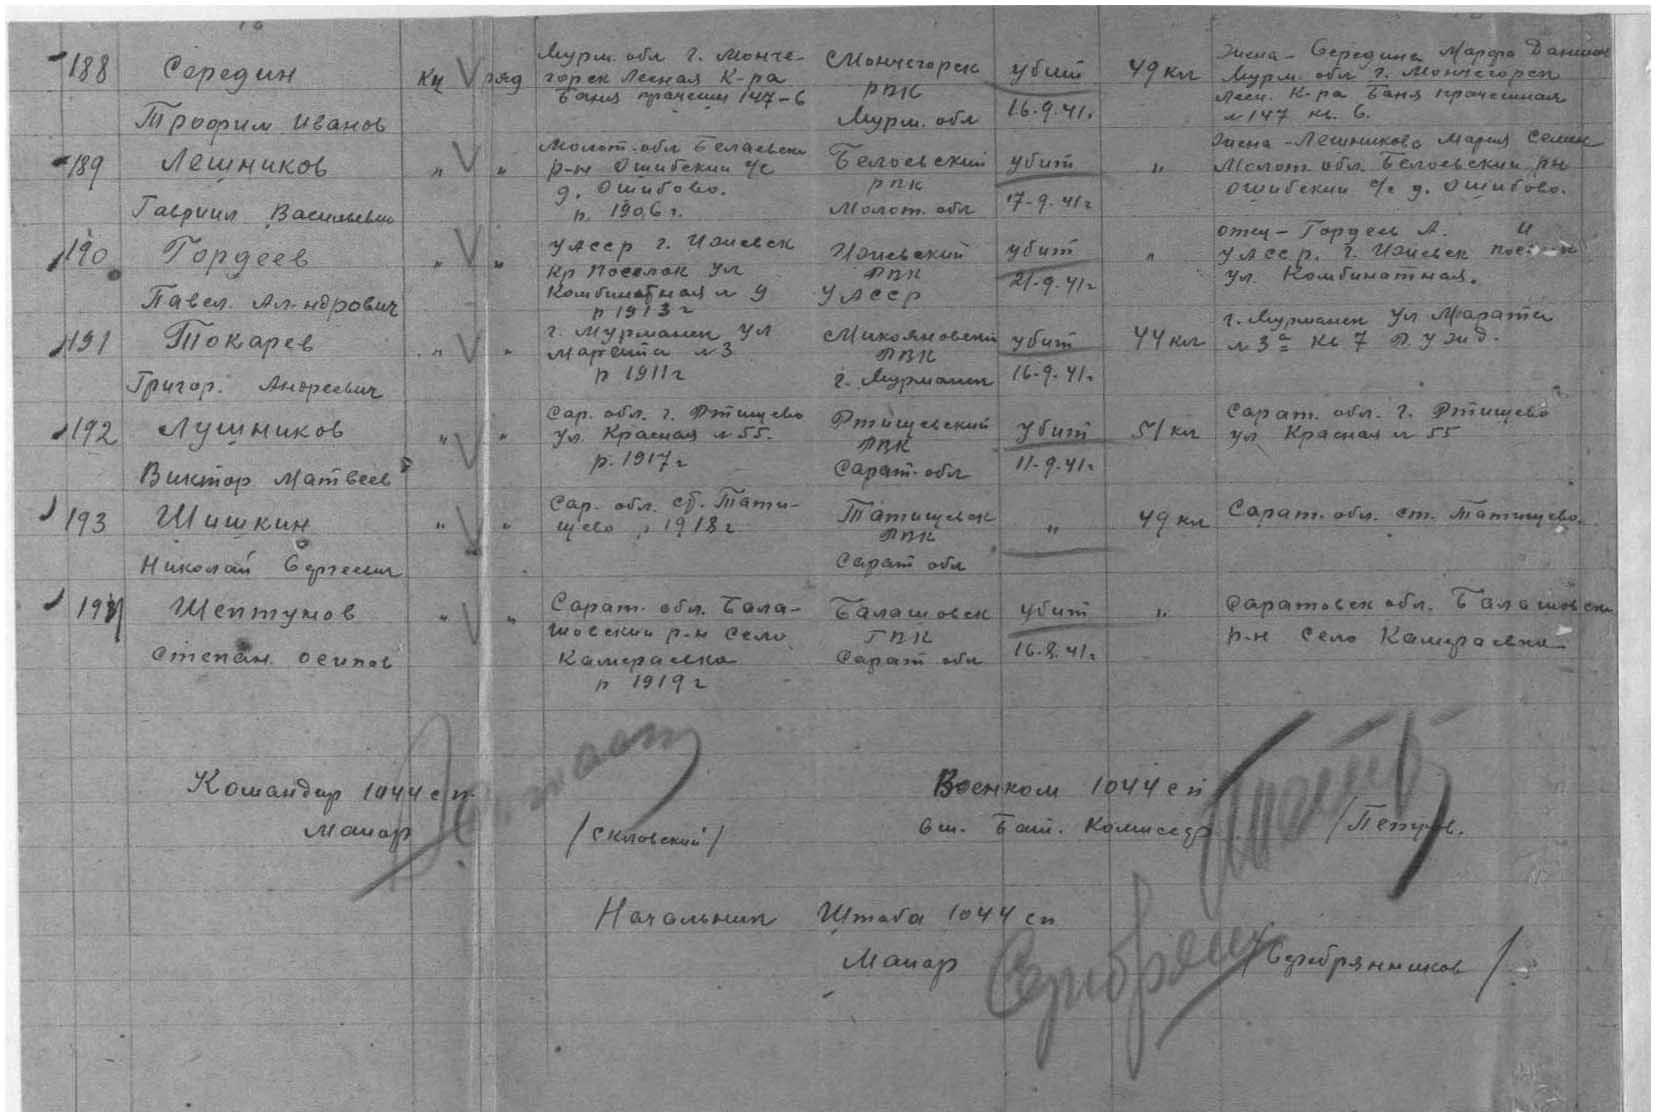 188 Середин кц ряд Мурм. обл г. Монче- Мончегорск убит 49 кл Жена - Середина Марфа
горск Лесная К-ра РПК Мурм. обл г. Мончегорск
Баня прачечн 147-6 Лесн. К-ра Баня прачешная
Трофим Иванов Мурм. обл 16.9.41г №147 кв. 6.
189 Лешников " " Молот. обл Белаевск Белоевский убит " Жена - Лешникова Мария Семен
р-н Ошибский с/с РПК Молот. обл. Белоевский рн
д. Ошибово. Ошибский с/с д. Ошибово.
Гавриил Васильевич р. 1906 г. Молот. обл 17-9-41г
190 Гордеев " " УАССР г. Ижевск Ижевский убит " отец - Гордеев А. И
Кр Поселок ул РВК УАССР, г. Ижевск
Комбинатная № 9 УАССР 21-9-41г ул. Комбинатная.
Павел Ал-ндрович р 1913 г
191 Токарев " " г. Мурманск ул Микояновский убит 44 кл г. Мурманск ул Марата
№ 3 РВК № 3а кв 7
р 1911г г. Мурманск 16-9-41г
Григор. Андреевич
192 Лушников " " Сар. обл. г. Ртищево Ртищевский убит 51 кл Сарат. обл. г. Ртищево
ул. Красная № 55. РВК ул Красная № 55
р. 1917г Сарат. обл 11-9-41г
Виктор Матвеев
193 Шишкин " " Сар. обл. ст. Тати- Татищевск " 49 кл Сарат. обл. ст. Татищево.
щево р 1918г РВК
Николай Сергеевич Сарат обл
194 Шептунов " " Сарат. обл. Бала- Балашовск убит " Саратовск обл. Балашовский
шовский р-н село ГВК р-н село
Степан Осипов Сарат обл 16.9.41г
р 1919г
Командир 1044 сп Военком 1044 сп
Майор /Скловский/ Бат. Комиссар /Петров.
Начальник Штаба 1044 сп
Майор /Серебрянников/